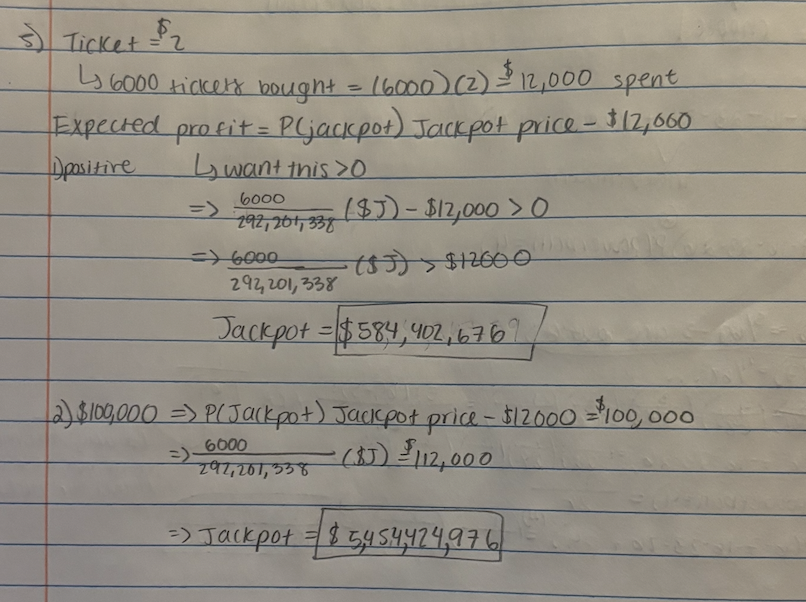 5) Ticket = $2
↳ 6000 tickets bought = (6000)(2) = $12,000 spent
Expected profit = P(jackpot) Jackpot price - $12,000
1) positive ↳ want this > 0
=> 6000/292,201,338 ($J) - $12,000 > 0
=> 6000/292,201,338 ($J) > $12000
Jackpot = $584,402,676
2) $100,000 => P(Jackpot) Jackpot price - $12000 = $100,000
=> 6000/292,201,338 ($J) = $112,000
=> Jackpot = $5,454,424,976